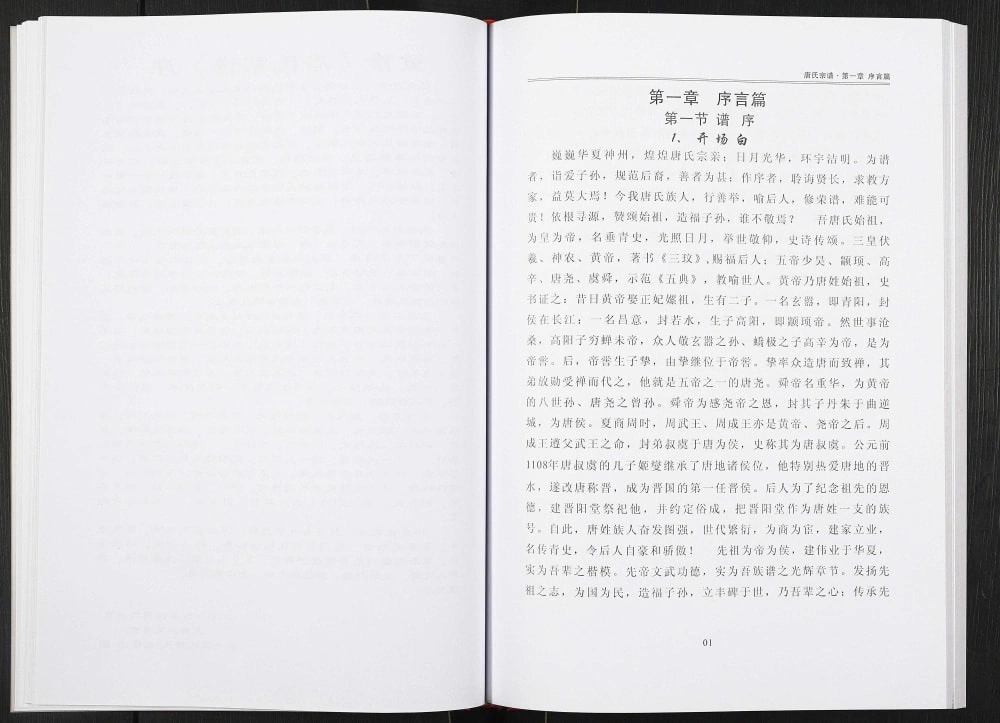 唐氏宗谱·第一章 序言篇
第一章 序言篇
第一节 谱 序
1、开场白
巍巍华夏神州，煌煌唐氏宗亲；日月光华，环宇洁明。为谱
者，诣爱子孙，规范后裔，善者为甚；作序者，聆诲贤长，求教方
家，益莫大焉！今我唐氏族人，行善举，喻后人，修荣谱，难能可
贵！依根寻源，赞颂始祖，造福子孙，谁不敬焉？ 吾唐氏始祖，
为皇为帝，名垂青史，光照日月，举世敬仰，史诗传颂。三皇伏
羲、神农、黄帝，著书《三玟》,赐福后人；五帝少昊、颛顼、高
辛、唐尧、虞舜，示范《五典》，教喻世人。黄帝乃唐姓始祖，史
书证之：昔日黄帝娶正妃嫘祖，生有二子。一名玄嚣，即青阳，封
侯在长江；一名昌意，封若水，生子高阳，即颛顼帝。然世事沧
桑，高阳子穷蝉未帝，众人敬玄嚣之孙、蟜极之子高辛为帝，是为
帝喾。后，帝喾生子挚，由挚继位于帝喾。挚率众造唐而致禅，其
弟放勋受禅而代之，他就是五帝之一的唐尧。舜帝名重华，为黄帝
的八世孙、唐尧之曾孙。舜帝为感尧帝之恩，封其子丹朱于曲逆
城，为唐侯。夏商周时，周武王、周成王亦是黄帝、尧帝之后。周
成王遵父武王之命，封弟叔虞于唐为侯，史称其为唐叔虞。公元前
1108年唐叔虞的儿子姬燮继承了唐地诸侯位，他特别热爱唐地的晋
水，遂改唐称晋，成为晋国的第一任晋侯。后人为了纪念祖先的恩
德，建晋阳堂祭祀他，并约定俗成，把晋阳堂作为唐姓一支的族
号。自此，唐姓族人奋发图强，世代繁衍，为商为宦，建家立业，
名传青史，令后人自豪和骄傲！ 先祖为帝为侯，建伟业于华夏，
实为吾辈之楷模。先帝文武功德，实为吾族谱之光辉章节。发扬先
祖之志，为国为民，造福子孙，立丰碑于世，乃吾辈之心；传承先
01